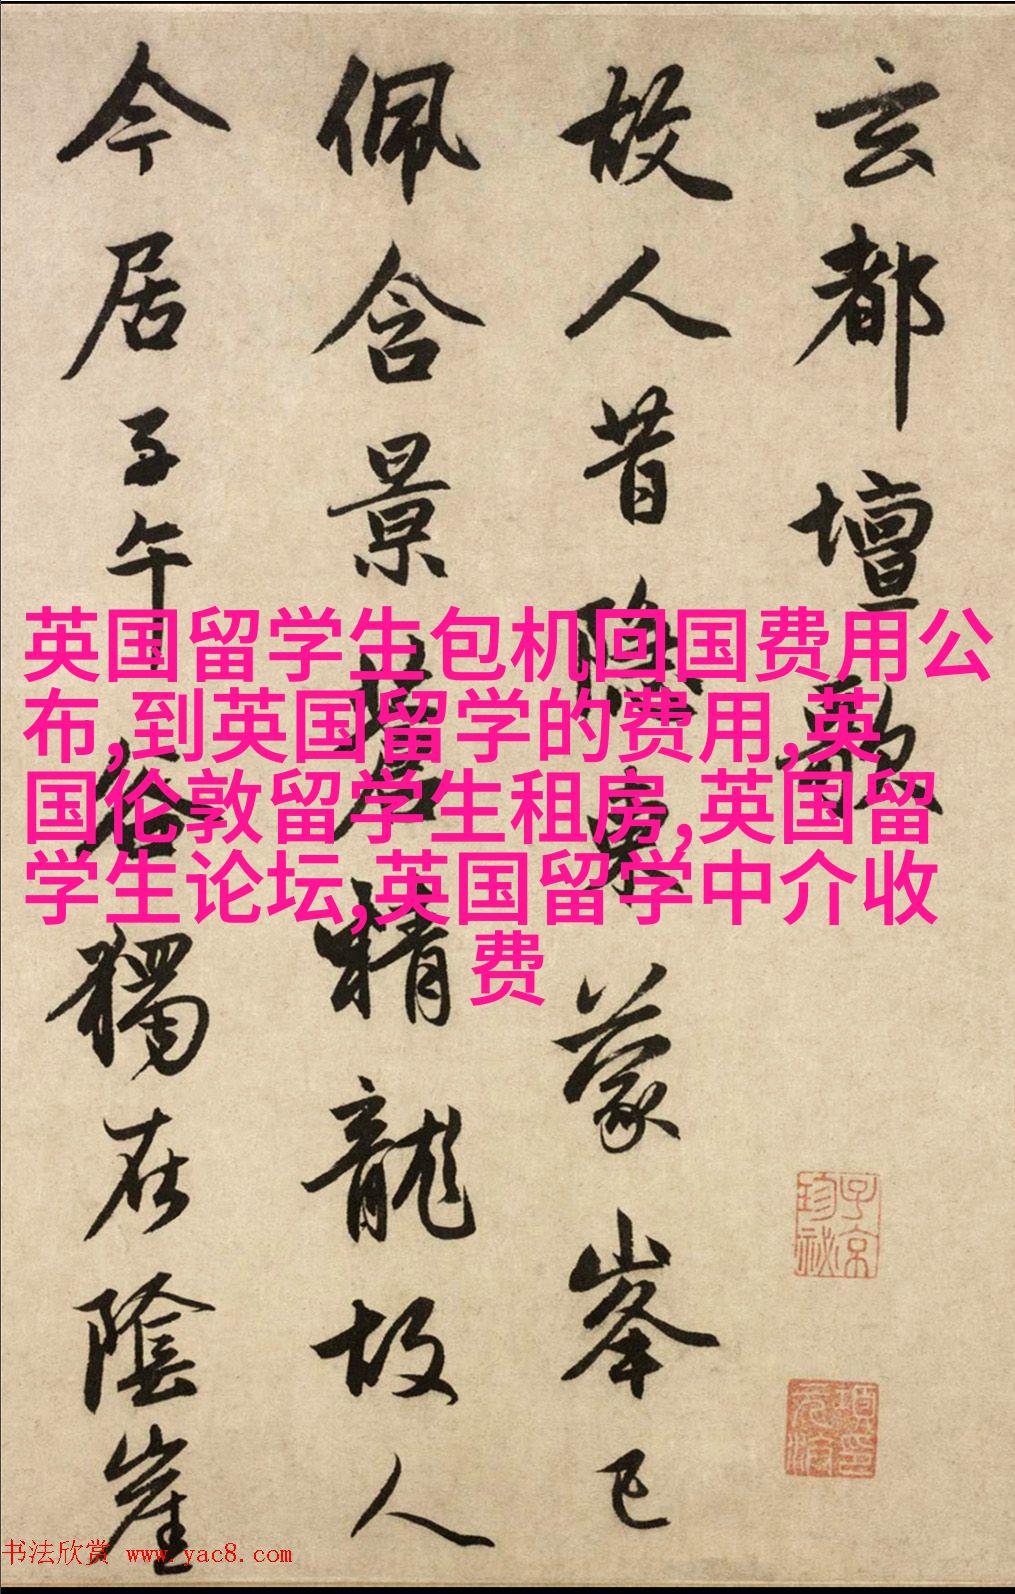 玄都壇歌
故人昔隱東蒙峯已
佩含景蒼精龍故人
今居子午谷獨在陰崖
英国留学生包机回国费用公
布,到英国留学的费用,英
国伦敦留学生租房,英国留
学生论坛,英国留学中介收
费
子京
珍祕
书法欣赏 www.yac8.com